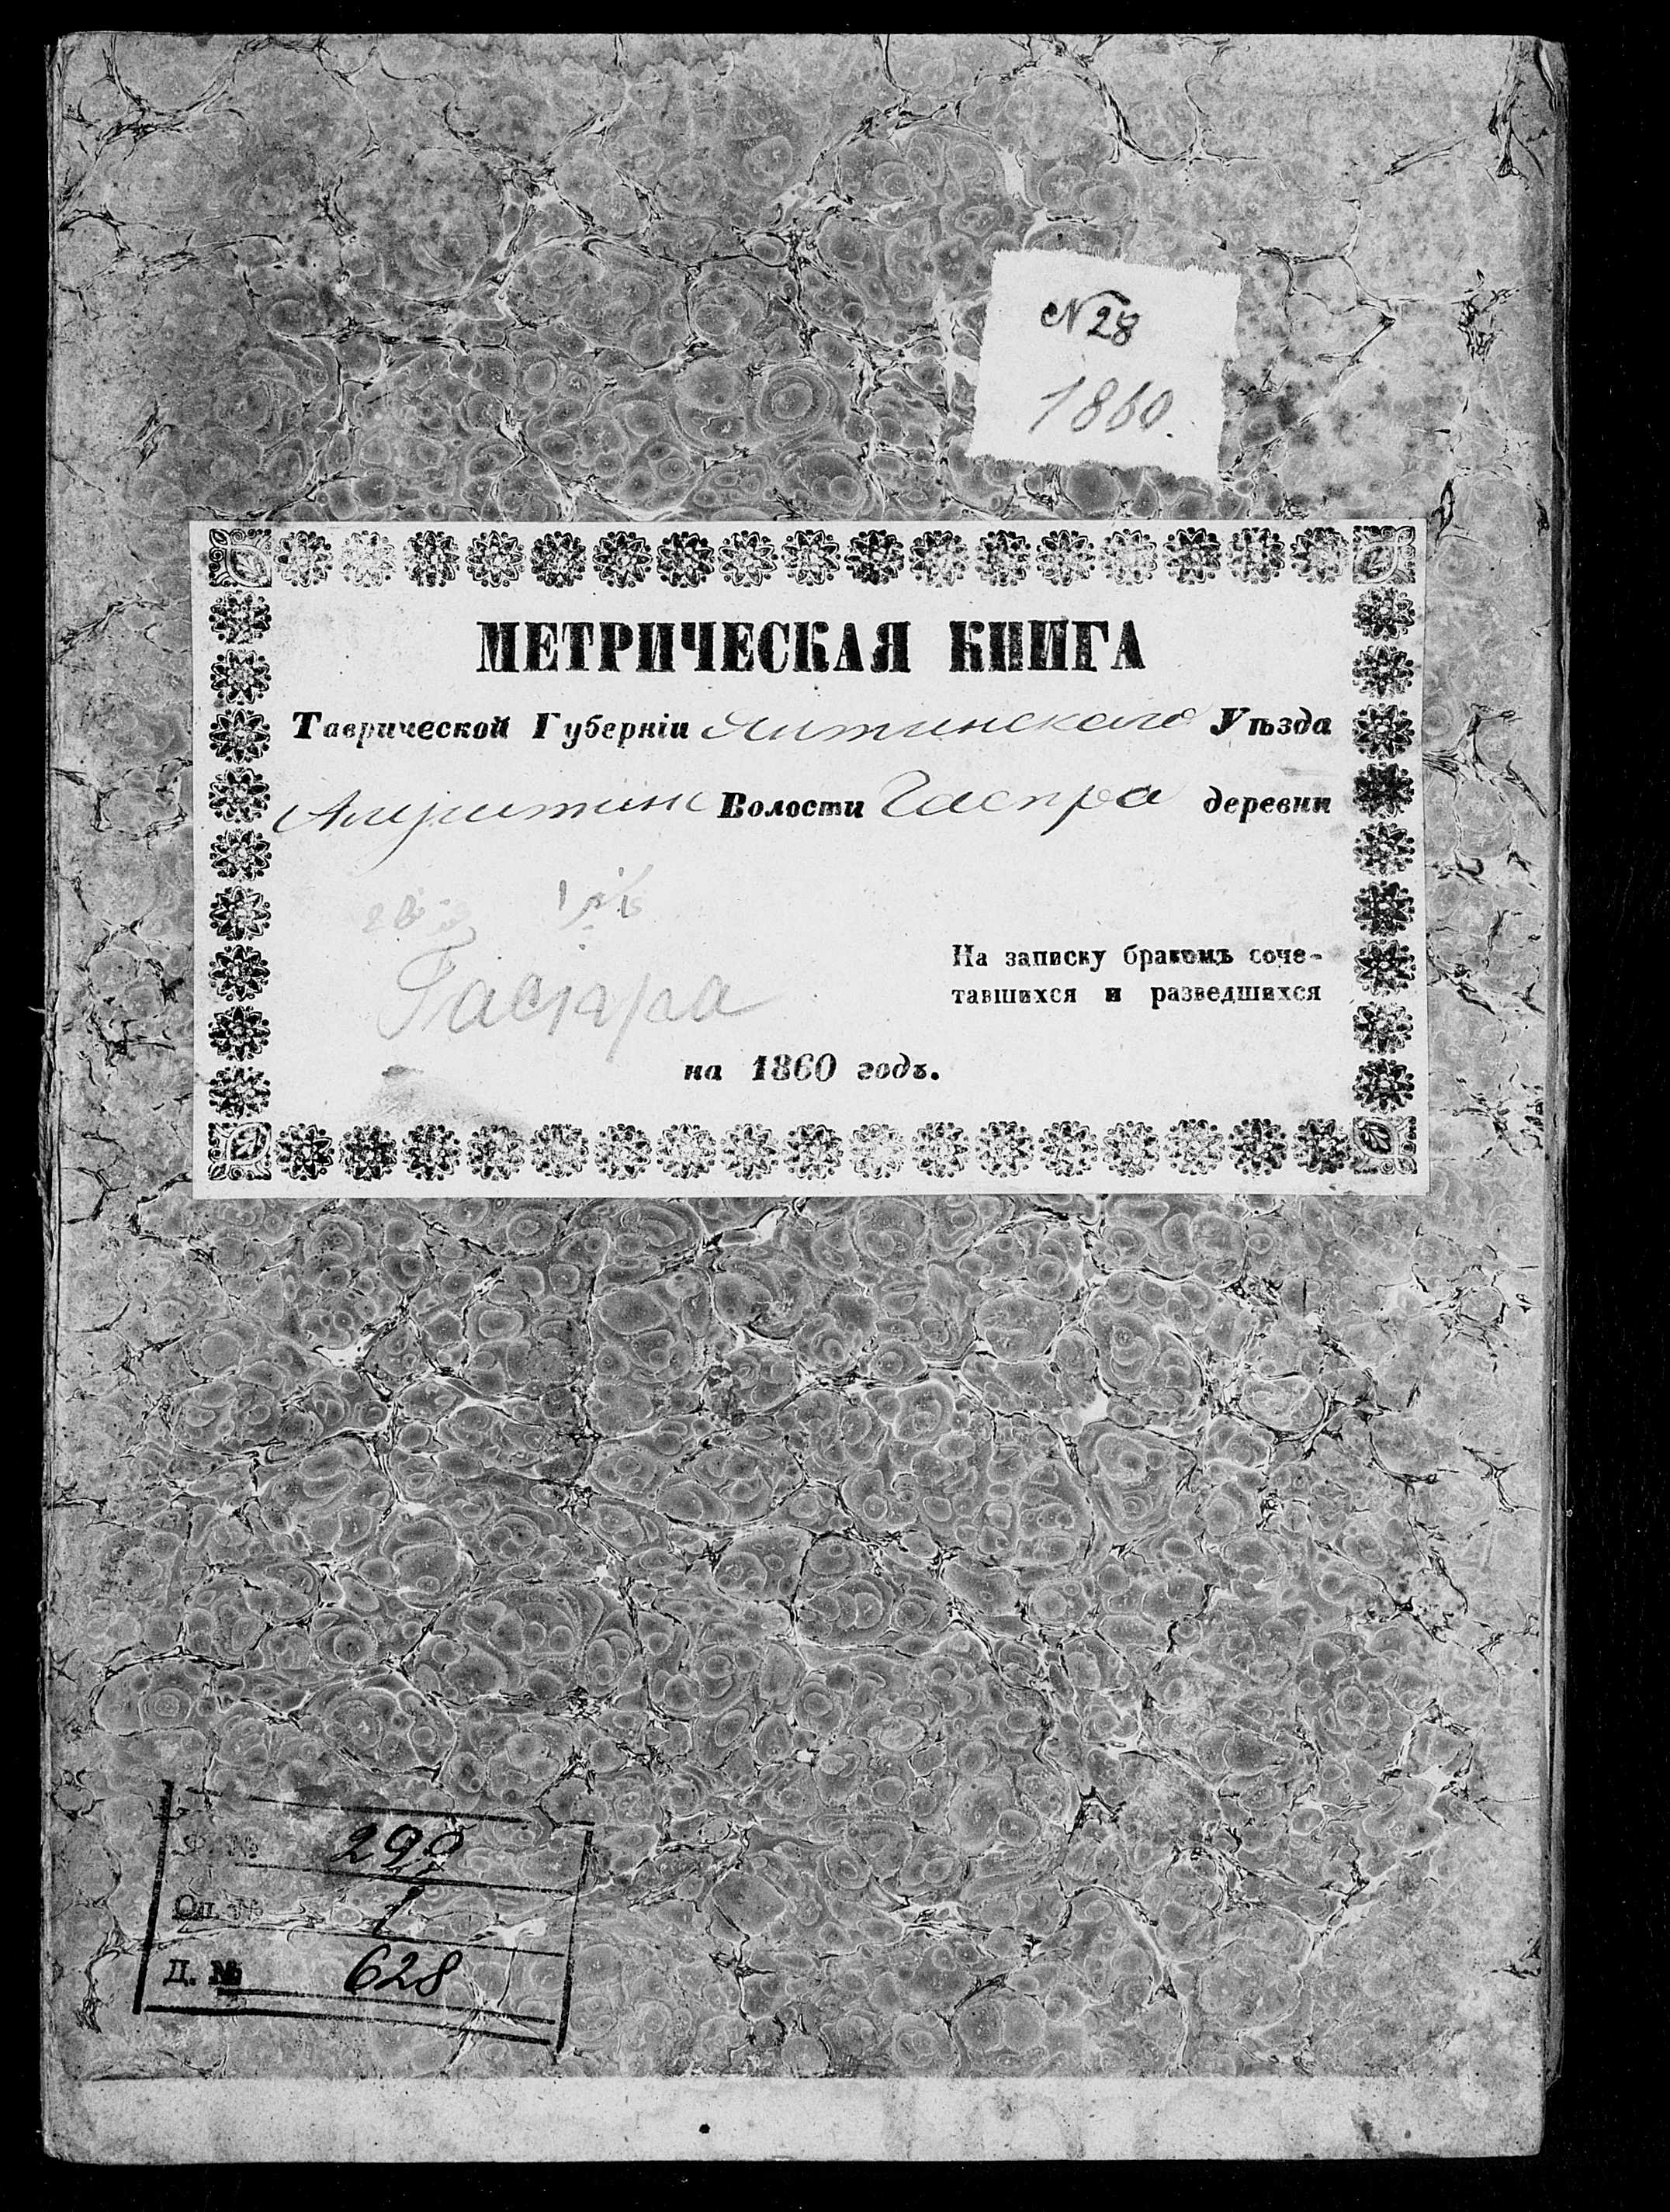 № 28
1860.
МЕТРИЧЕСКАЯ КНИГА
Таврической Губерніи Ялтинскаго Уѣзда
Волости Гаспра деревни
Гаспра
На записку бракомъ соче-
тавшихся и разведшихся
на 1860 годъ.
Ф. №
Оп. № 1
Д. № 628